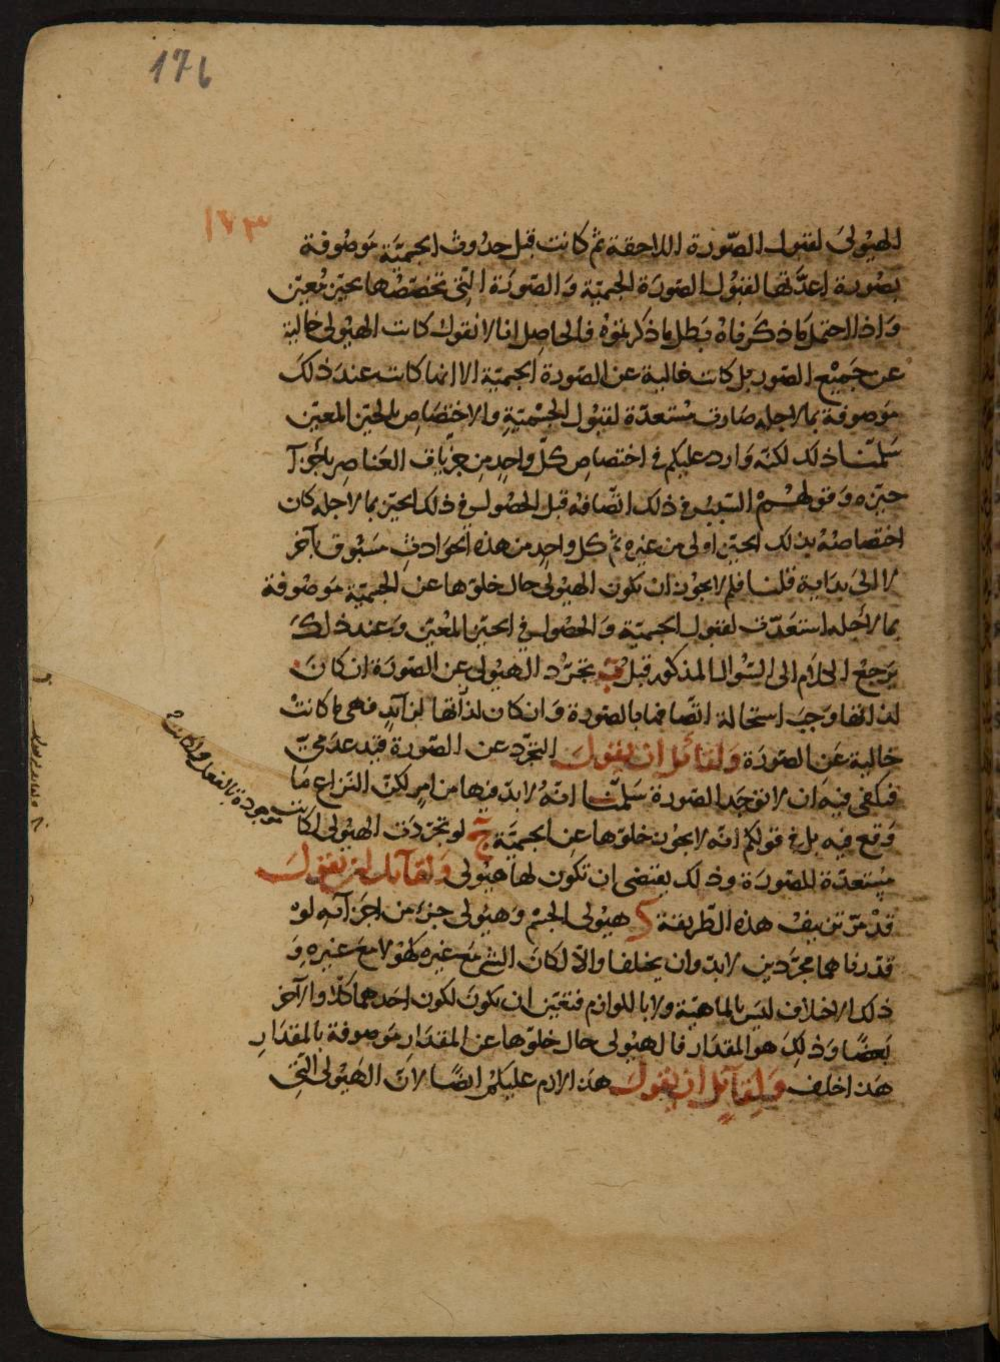 176
١٧٣
الهيولى لقبول الصّورة اللاحقة ثم كانت قبل حدوث الجسميّة موصوفة
بصورة اعدّتها لقبول الصّورة الجسميّة والصّورة الّتي تخصّصها بحيّز معيّن
واذا احتمل ما ذكرناه بطل ما ذكرتموه فالحاصل انا لا نقول كانت الهيولى خالية
عن جميع الصّور بل كانت خالية عن الصّورة الجسميّة الا انها كانت عند ذلك
موصوفة بما لاجله صارت مستعدّة لقبول الجسميّة والاختصاص بالحيّز المعيّن
سلّمنا ذلك لكنّه وارد عليكم في اختصاص كلّ واحد من جزئيات العناصر باجزآ
حيّزه وقولهم السّبب في ذلك اتّصافه قبل الحصول في ذلك الحيّز بما لاجله كان
اختصاصه بذلك الحيّز اولى من غيره ثم كل واحد من هذه الحوادث مسبوق بآخر
لا الى بداية قلنا فلم لا يجوز ان تكون الهيولى حال خلوّها عن الجسميّة موصوفة
بما لاجله استعدّت لقبول الجسميّة والحصول في الحيّز المعيّن وعند ذلك
يرجع الكلام الى السّوال المذكور قبل ب تجرّد الهيولى عن الصّورة ان كان
لذاتها وجب استحالة اتّصافها بالصّورة وان كان لذاتها لزايد فهي ما كانت
خالية عن الصّورة ولقائل ان يقول التجرّد عن الصّورة قيد عدميّ
فيكفي فيه ان لا توجد الصّورة سلّمنا انه لا بدّ فيها من امر لكن النّزاع ما
وقع فيه بل في قولكم انه لا يجوز خلوّها عن الجسميّة ج لو تجرّدت الهيولى لكانت
موجودة بالفعل ولكانت
مستعدّة للصّورة وذلك يقتضي ان تكون لها هيولى ولقآئل ان يقول
قد مرّ تزييف هذه الطّريقة د هيولى الجسم وهيولى جزء من اجزآئه لو
قدّرناهما مجرّدين لا بدّ وان يختلفا والاّ لكان الشيء مع غيره كهو لا مع غيره و
ذلك الاختلاف ليس بالماهيّة ولا باللوازم فتعيّن ان يكون لكون احدهما كلّا والآخر
بعضًا وذلك هو المقدار فالهيولى حال خلوّها عن المقدار موصوفة بالمقدار
هذا خلف ولقآئل ان يقول هذا لازم عليكم ايضًا لانّ الهيولى الّتي